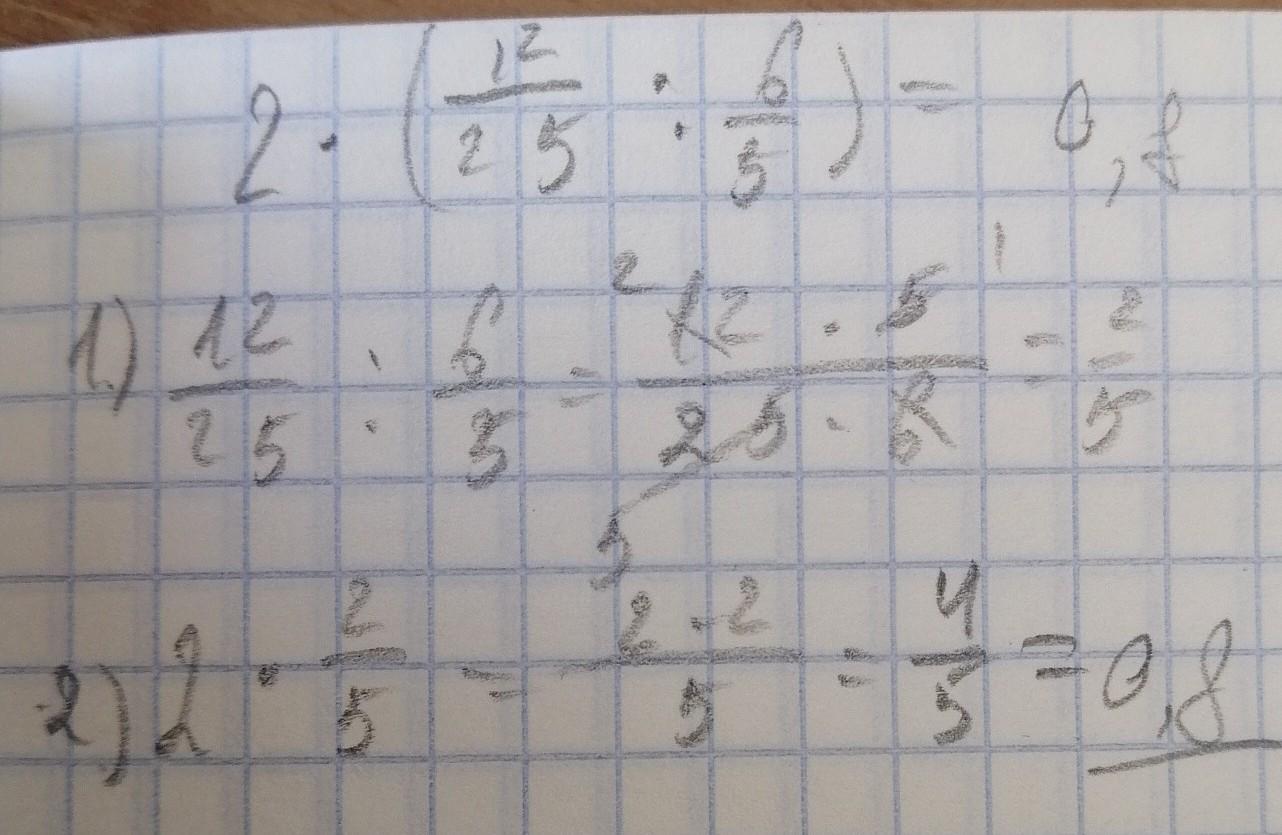 2 · (12/25 : 6/5) = 0,8
1) 12/25 : 6/5 = 12 · 5/25 · 6 = 2/5
2) 2 · 2/5 = 2 · 2/5 = 4/5 = 0,8